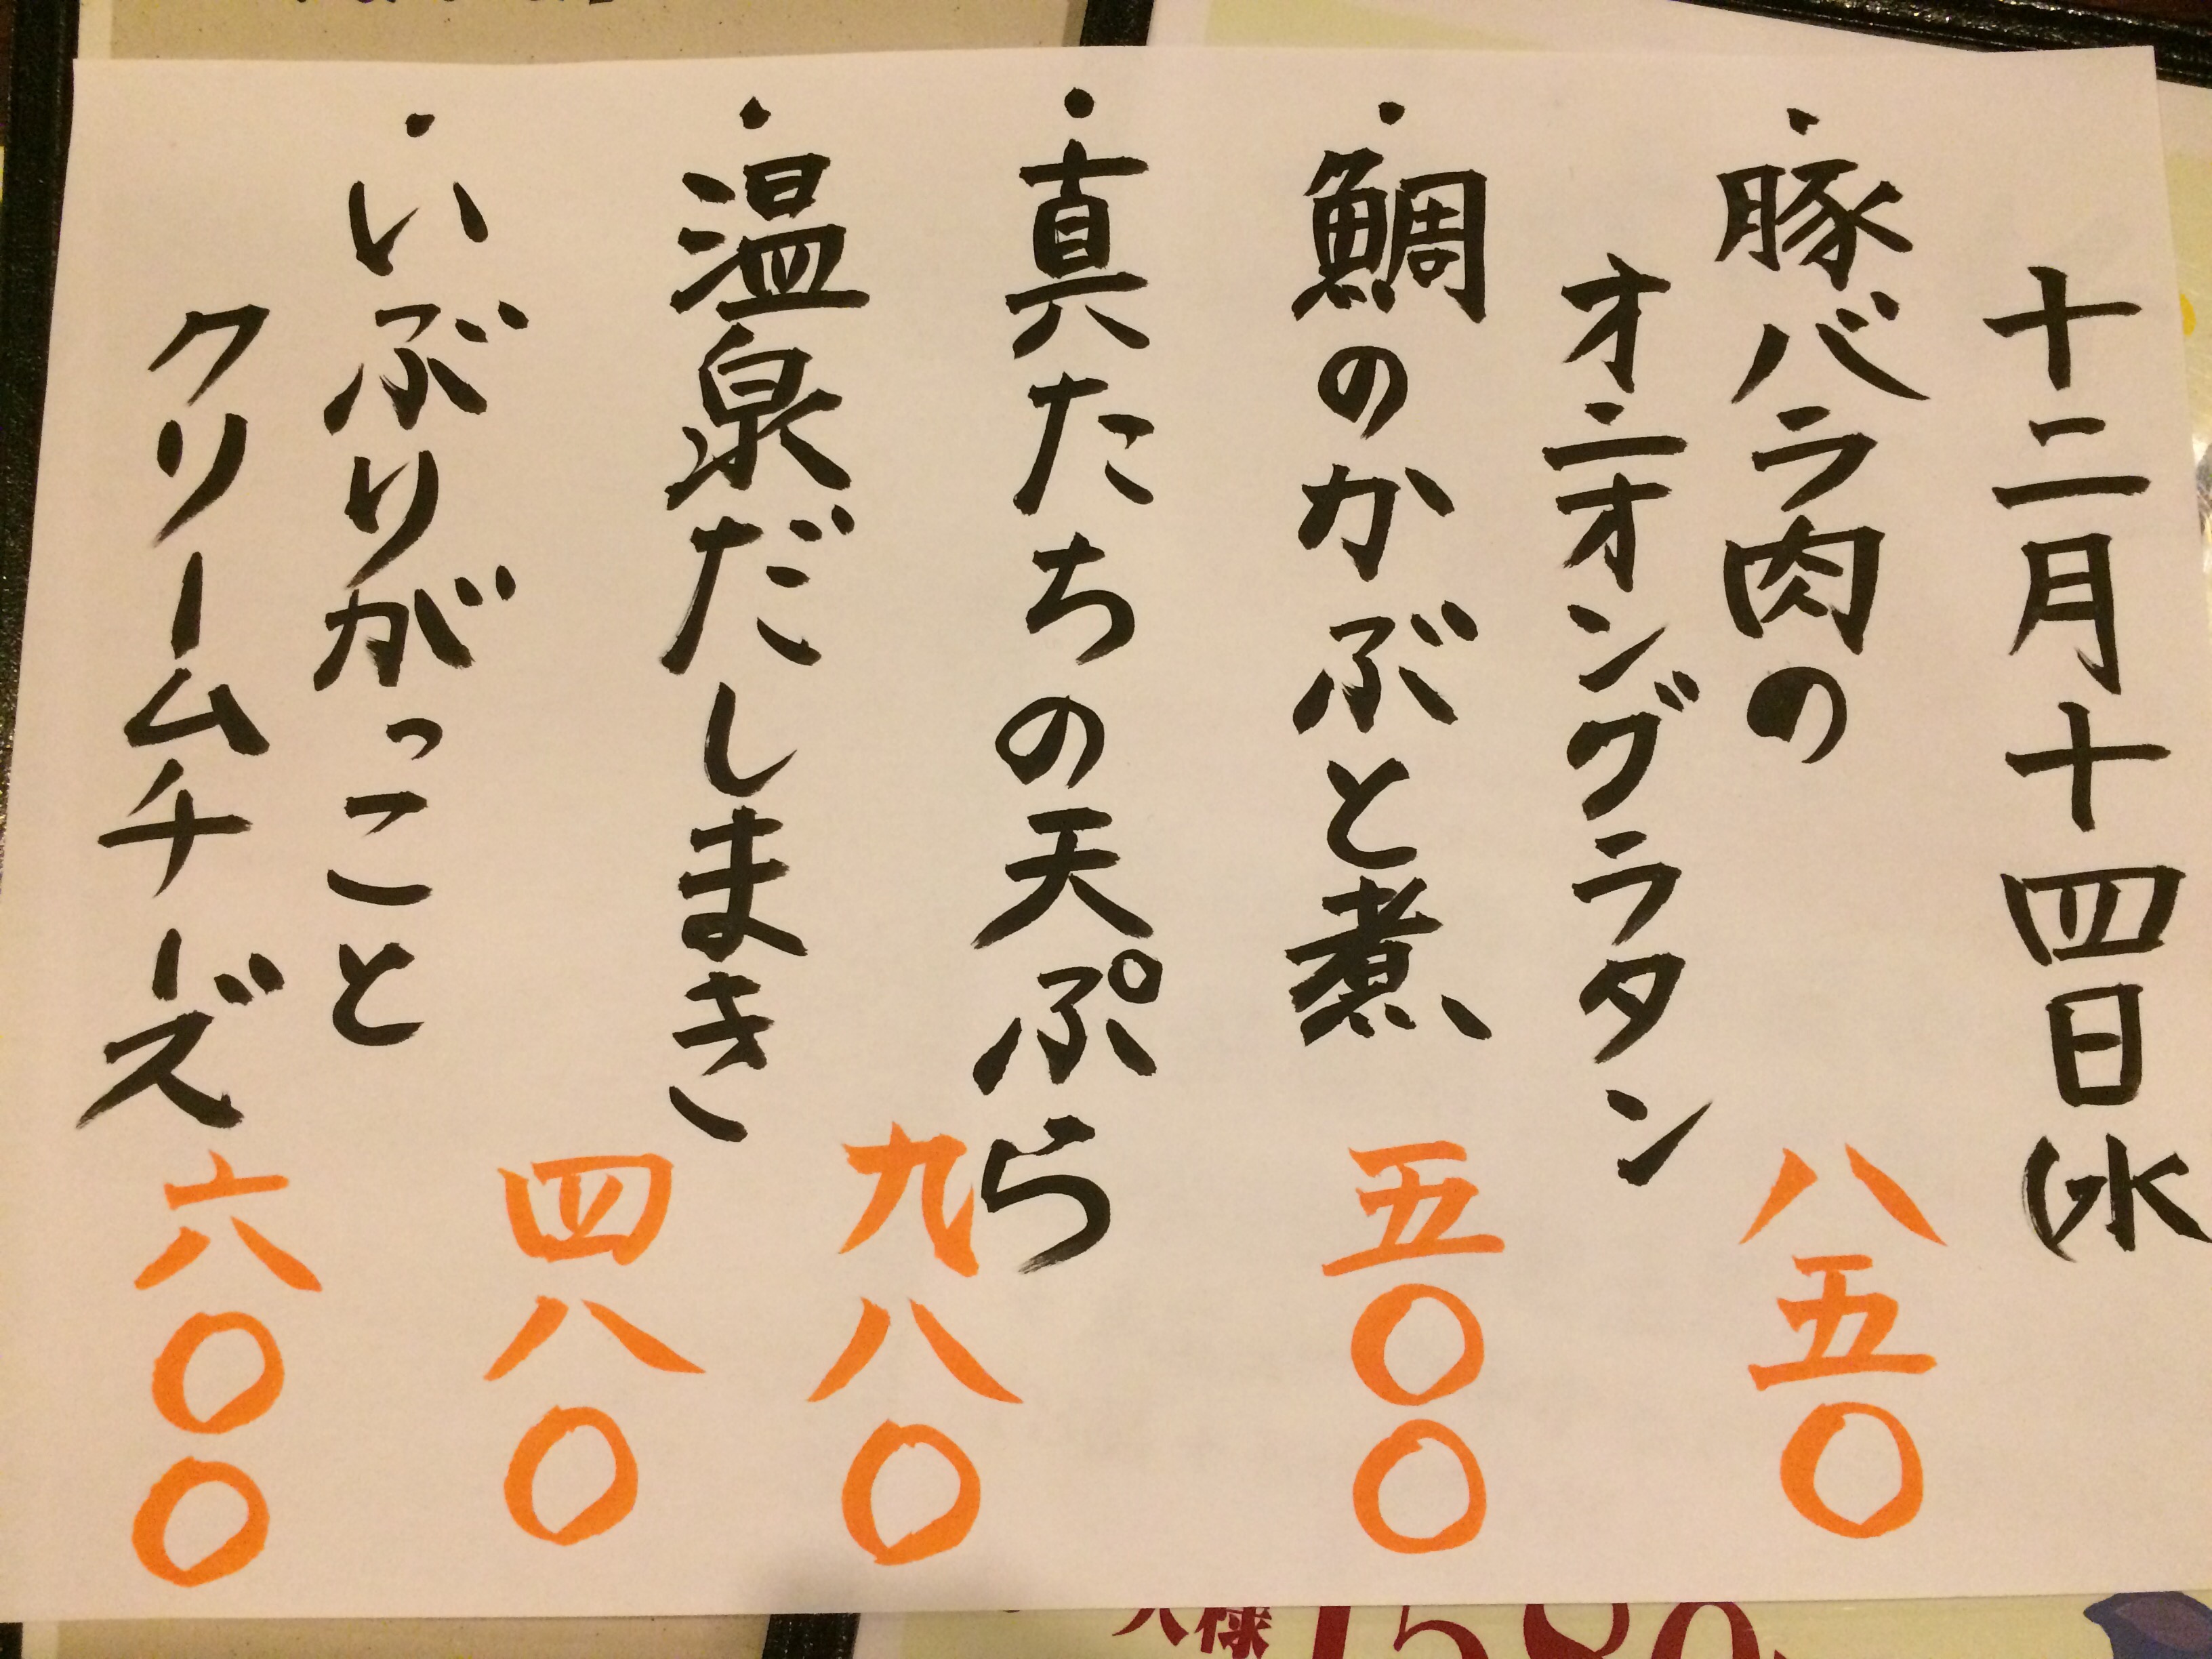 十二月十四日(水
・豚バラ肉の
オニオングラタン
八五〇
・鯛のかぶと煮
五〇〇
・真たちの天ぷら
九八〇
・温泉だしまき
四八〇
・いぶりがっこと
クリームチーズ
六〇〇
人様 1580